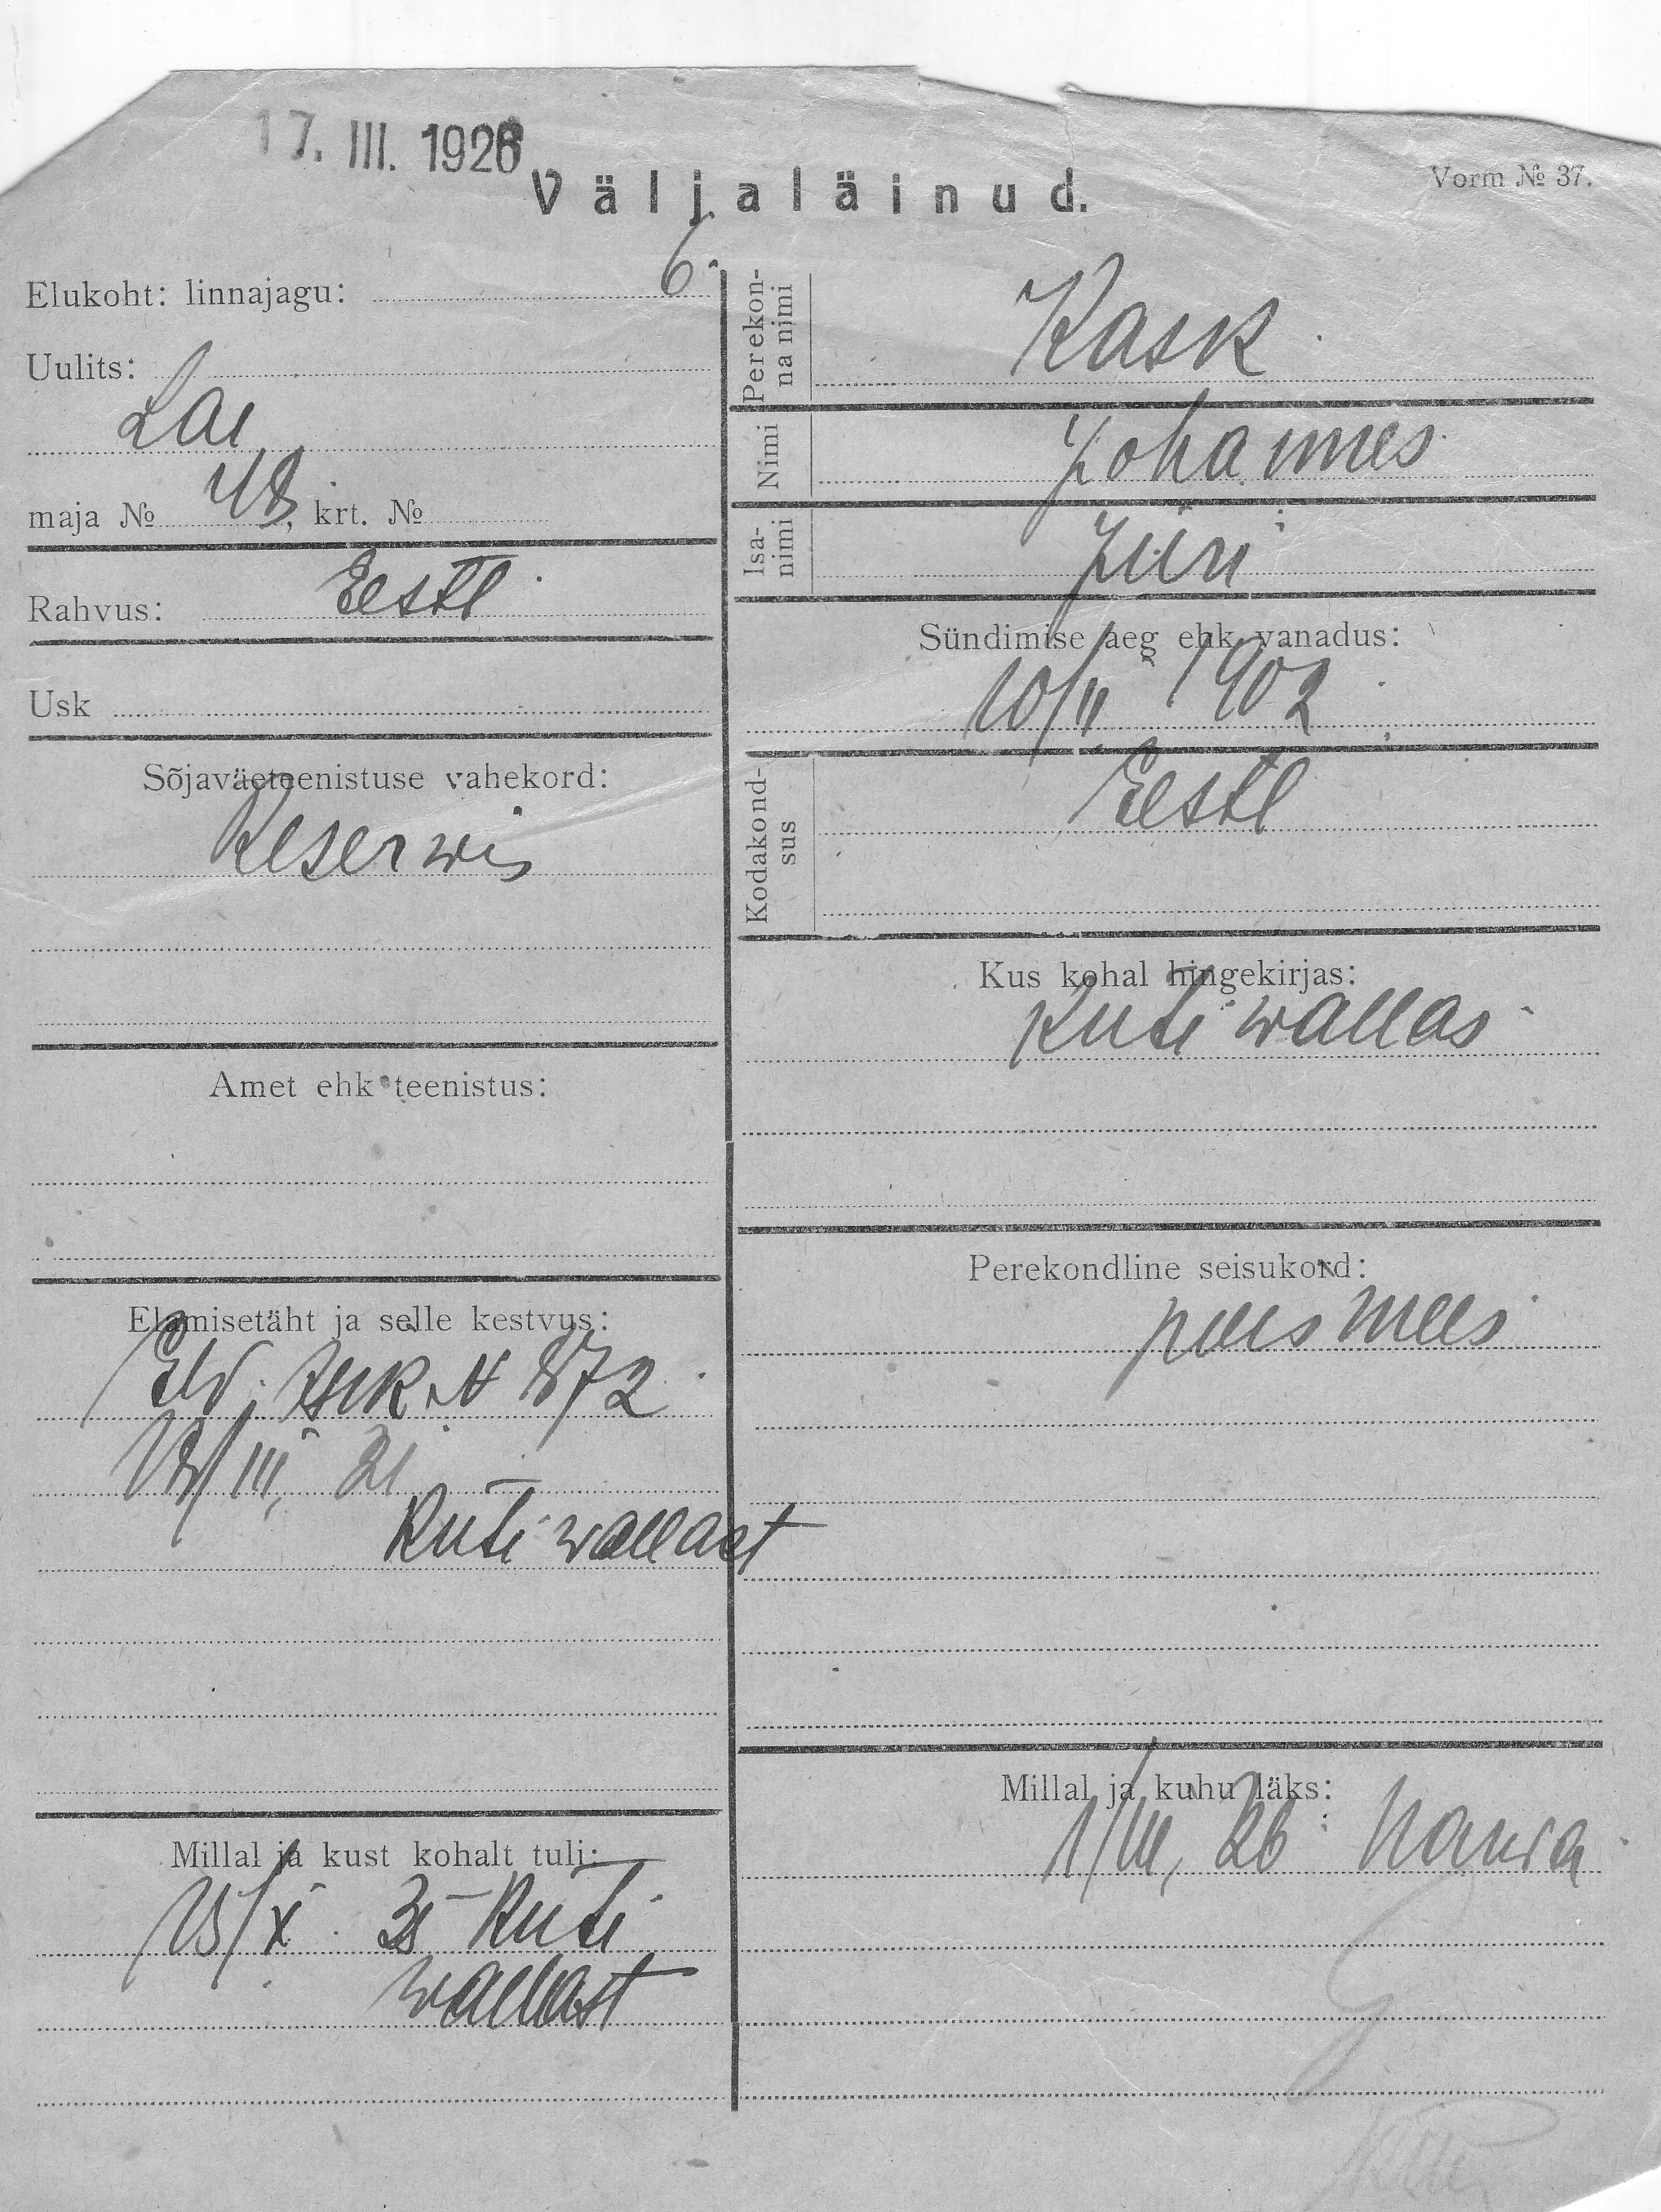 17. III. 1926
Väljaläinud.
Vorm № 37.
Elukoht: linnajagu: 6.
Uulits:
Lai
maja № 48, krt. №
Rahvus: Eesti
Usk
Sõjaväeteenistuse vahekord:
Reserwis
Amet ehk teenistus:
Elamisetäht ja selle kestvus:
N 872
III, 21
Ruti wallast
Millal ja kust kohalt tuli:
15/X 25 Ruti
wallast
Perekonna nimi
Kask
Nimi
Johannes
Isanimi
Jüri
Sündimise aeg ehk vanadus:
10/II 1902
Kodakondsus
Eesti
Kus kohal hingekirjas:
Ruti wallas
Perekondline seisukord:
poismees
Millal ja kuhu läks:
1/III, 26 Narva